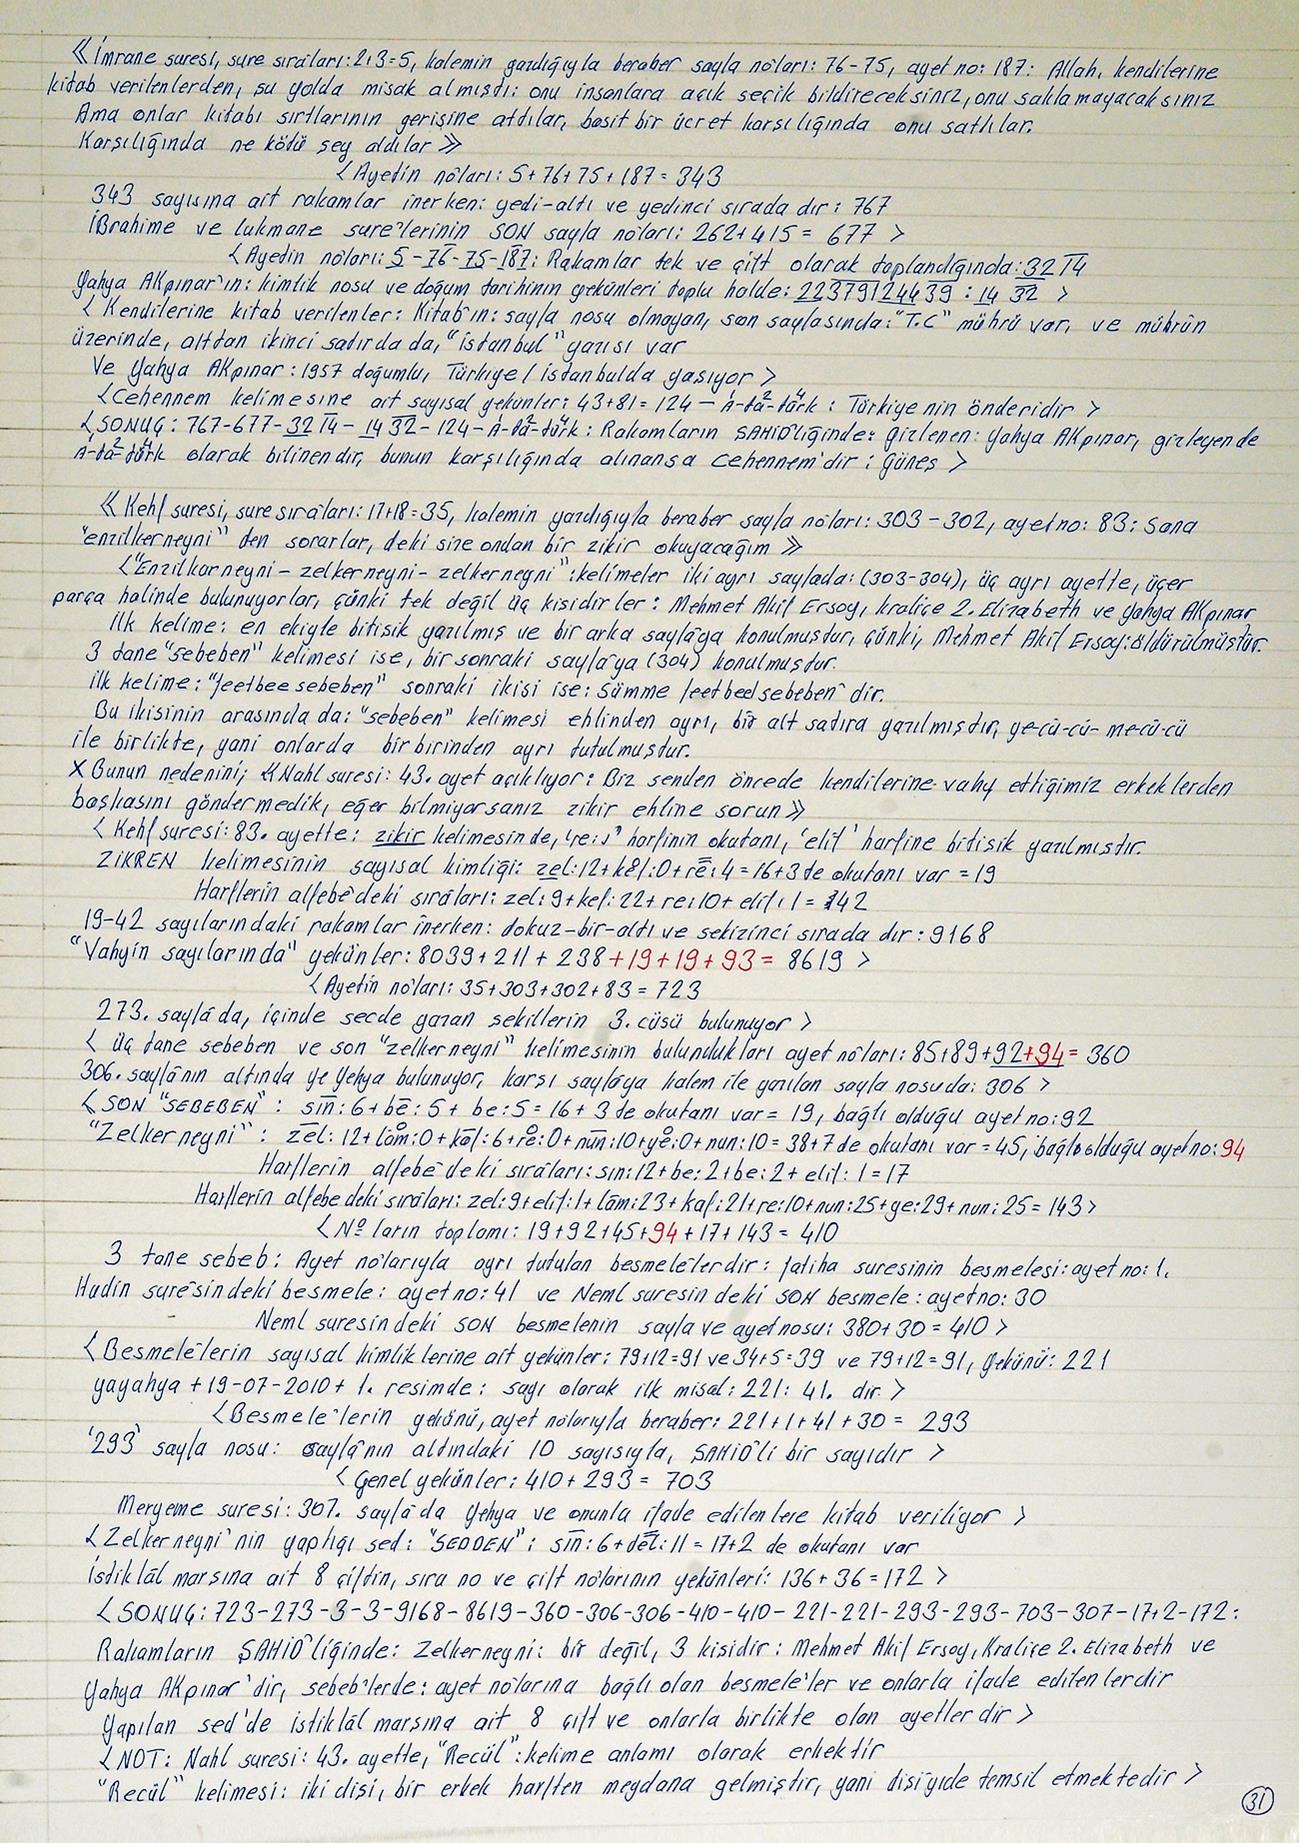 《İmrane suresi, sure sıraları: 2+3=5, kalemin yazdığıyla beraber sayfa noları: 76-75, ayet no: 187: Allah, kendilerine
kitab verilenlerden, şu yolda misak almıştı: onu insanlara açık seçik bildireceksiniz, onu saklamayacaksınız
Ama onlar kitabı sırtlarının gerisine attılar, basit bir ücret karşılığında onu sattılar.
Karşılığında ne kötü şey aldılar》
<Ayetin noları: 5+76+75+187=343
343 sayısına ait rakamlar inerken: yedi-altı ve yedinci sırada dır: 767
İbrahime ve lukmane sure'lerinin SON sayfa noları: 262+415= 677 >
<Ayetin noları: 5-76-75-187: Rakamlar tek ve çift olarak toplandığında: 32 14
Yahya AKpınar'ın: kimlik nosu ve doğum tarihinin yekünleri toplu halde: 22379124439 : 14 32 >
<Kendilerine kitab verilenler: Kitab'ın: sayfa nosu olmayan, son sayfasında: "T.C" mührü var, ve mührün
üzerinde, alttan ikinci satırda da, "istanbul" yazısı var
Ve Yahya AKpınar: 1957 doğumlu, Türkiye/istanbulda yaşıyor >
<Cehennem kelimesine ait sayısal yekünler: 43+81=124 - A¹-ta²-türk⁴ : Türkiye'nin önderidir >
<SONUÇ: 767-677-32 14-14 32-124-A¹-ta²-türk⁴: Rakamların ŞAHİD'liğinde: Gizlenen: Yahya AKpınar, gizleyen de
A¹-ta²-türk⁴ olarak bilinendir, bunun karşılığında alınansa cehennem'dir: Güneş >
《Kehf suresi, sure sıraları: 17+18=35, kalemin yazdığıyla beraber sayfa noları: 303-302, ayet no: 83: Sana
"enzilkerneyni" den sorarlar, deki size ondan bir zikir okuyacağım》
<"Enzilkarneyni-zelkerneyni-zelkerneyni": kelimeler iki ayrı sayfada: (303-304), üç ayrı ayette, üçer
parça halinde bulunuyorlar, çünki tek değil üç kişidirler: Mehmet Akif Ersoy, kraliçe 2. Elizabeth ve Yahya AKpınar
İlk kelime: en ekiyle bitişik yazılmış ve bir arka sayfa'ya konulmuştur, çünki, Mehmet Akif Ersoy: öldürülmüştür.
3 tane "sebeben" kelimesi ise, bir sonraki sayfa'ya (304) konulmuştur.
ilk kelime: "feetbee sebeben" sonraki ikisi ise: Sümme feetbed sebeben" dir.
Bu ikisinin arasında da: "sebeben" kelimesi ehlinden ayrı, bir alt satıra yazılmıştır, ye-cü-cü-me-cü-cü
ile birlikte, yani onlarda birbirinden ayrı tutulmuştur.
X Bunun nedenini; 《Nahl suresi: 43. ayet açıklıyor: Biz senden öncede kendilerine vahy ettiğimiz erkeklerden
başkasını göndermedik, eğer bilmiyorsanız zikir ehline sorun》
<Kehf suresi: 83. ayette: zikir kelimesinde, 're: ر' harfinin okutanı, 'elif' harfine bitişik yazılmıştır.
ZİKREN kelimesinin sayısal kimliği: zel:12+kef:0+re:4=16+3 de okutanı var =19
Harflerin alfebe'deki sıraları: zel:9+kef:22+re:10+elif:1= 42
19-42 sayılarındaki rakamlar inerken: dokuz-bir-altı ve sekizinci sırada dır: 9168
"Vahyin sayılarında" yekünler: 8039+211+238+19+19+93= 8619 >
<Ayetin noları: 35+303+302+83=723
273. sayfa'da, içinde secde yazan şekillerin 3.cüsü bulunuyor >
<üç tane sebeben ve son "zelkerneyni" kelimesinin bulundukları ayet noları: 85+89+92+94= 360
306. sayfa'nın altında ye yehya bulunuyor, karşı sayfaya kalem ile yazılan sayfa nosuda: 306 >
<SON "SEBEBEN": sin:6+be:5+be:5=16+3 de okutanı var= 19, bağlı olduğu ayet no: 92
"Zelkerneyni": zel:12+lâm:0+kaf:6+re:0+nun:10+ye:0+nun:10=38+7 de okutanı var =45, bağlı olduğu ayet no: 94
Harflerin alfebe'deki sıraları: sin:12+be:2+be:2+elif:1=17
Harflerin alfebe'deki sıraları: zel:9+elif:1+lâm:23+kaf:21+re:10+nun:25+ye:29+nun:25=143>
<No ların toplamı: 19+92+45+94+17+143= 410
3 tane sebeb: Ayet nolarıyla ayrı tutulan besmele'lerdir: fatiha suresinin besmelesi: ayet no: 1.
Hudin suresindeki besmele: ayet no: 41 ve Neml suresin deki SON besmele: ayet no: 30
Neml suresindeki SON besmelenin sayfa ve ayet nosu: 380+30=410 >
<Besmele'lerin sayısal kimliklerine ait yekünler: 79+12=91 ve 34+5=39 ve 79+12=91, yekünü: 221
yayahya+19-07-2010+1. resimde: sayı olarak ilk misal: 221: 41. dir. >
<Besmele'lerin yekünü, ayet nolarıyla beraber: 221+1+41+30= 293
'293' sayfa nosu: sayfa'nın altındaki 10 sayısıyla, ŞAHİD'li bir sayıdır >
<Genel yekünler: 410+293= 703
Meryeme suresi: 307. sayfa'da Yehya ve onunla ifade edilenlere kitab veriliyor >
<Zelkerneyni'nin yaptığı sed: "SEDDEN": sin:6+del:11=17+2 de okutanı var
istiklâl marşına ait 8 çiftin, sıra no ve çift nolarının yekünleri: 136+36=172 >
<SONUÇ: 723-273-3-3-9168-8619-360-306-306-410-410-221-221-293-293-703-307-17+2-172:
Rakamların ŞAHİD'liğinde: Zelkerneyni: bir değil, 3 kişidir: Mehmet Akif Ersoy, Kraliçe 2. Elizabeth ve
Yahya AKpınar'dir, sebeb'lerde: ayet nolarına bağlı olan besmele'ler ve onlarla ifade edilenlerdir
Yapılan sed'de istiklâl marşına ait 8 çift ve onlarla birlikte olan ayetlerdir >
<NOT: Nahl suresi: 43. ayette, "Recül": kelime anlamı olarak erkektir
"Recül" kelimesi: iki dişi, bir erkek harften meydana gelmiştir, yani dişiyide temsil etmektedir >
31